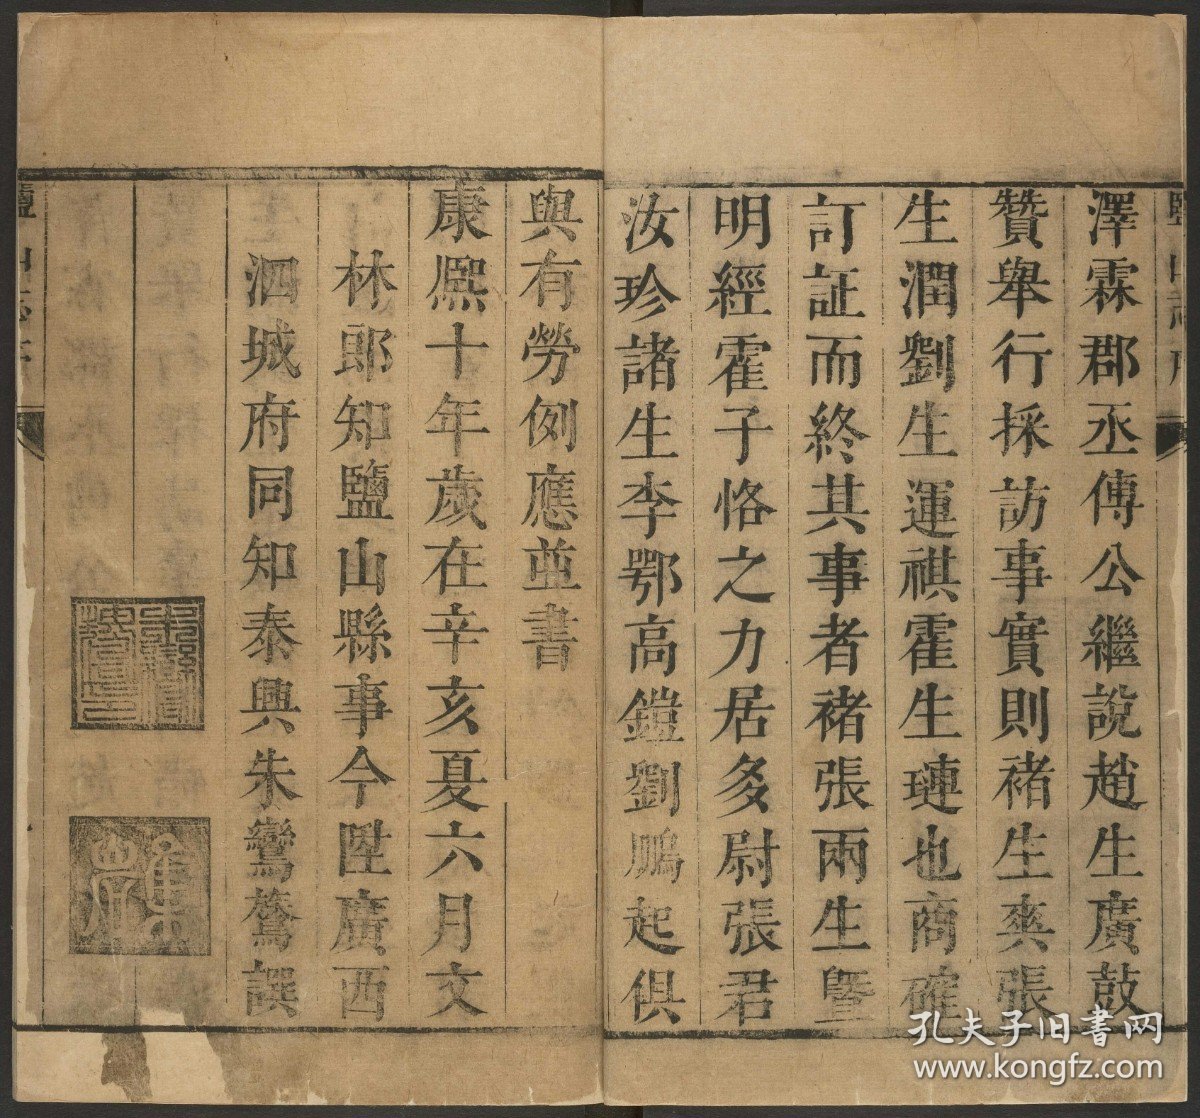 澤霖郡丞傳公繼說趙生廣鼓
贊舉行採訪事實則褚生爽張
生潤劉生運祺霍生璉也商確
訂証而終其事者褚張兩生曁
明經霍子恪之力居多尉張君
汝珍諸生李鄂高鎧劉鵬起俱
與有勞例應並書
康熙十年歲在辛亥夏六月文
林郎知鹽山縣事今陞廣西
泗城府同知泰興朱鸞鶩譔
孔夫子旧書网
www.kongfz.com